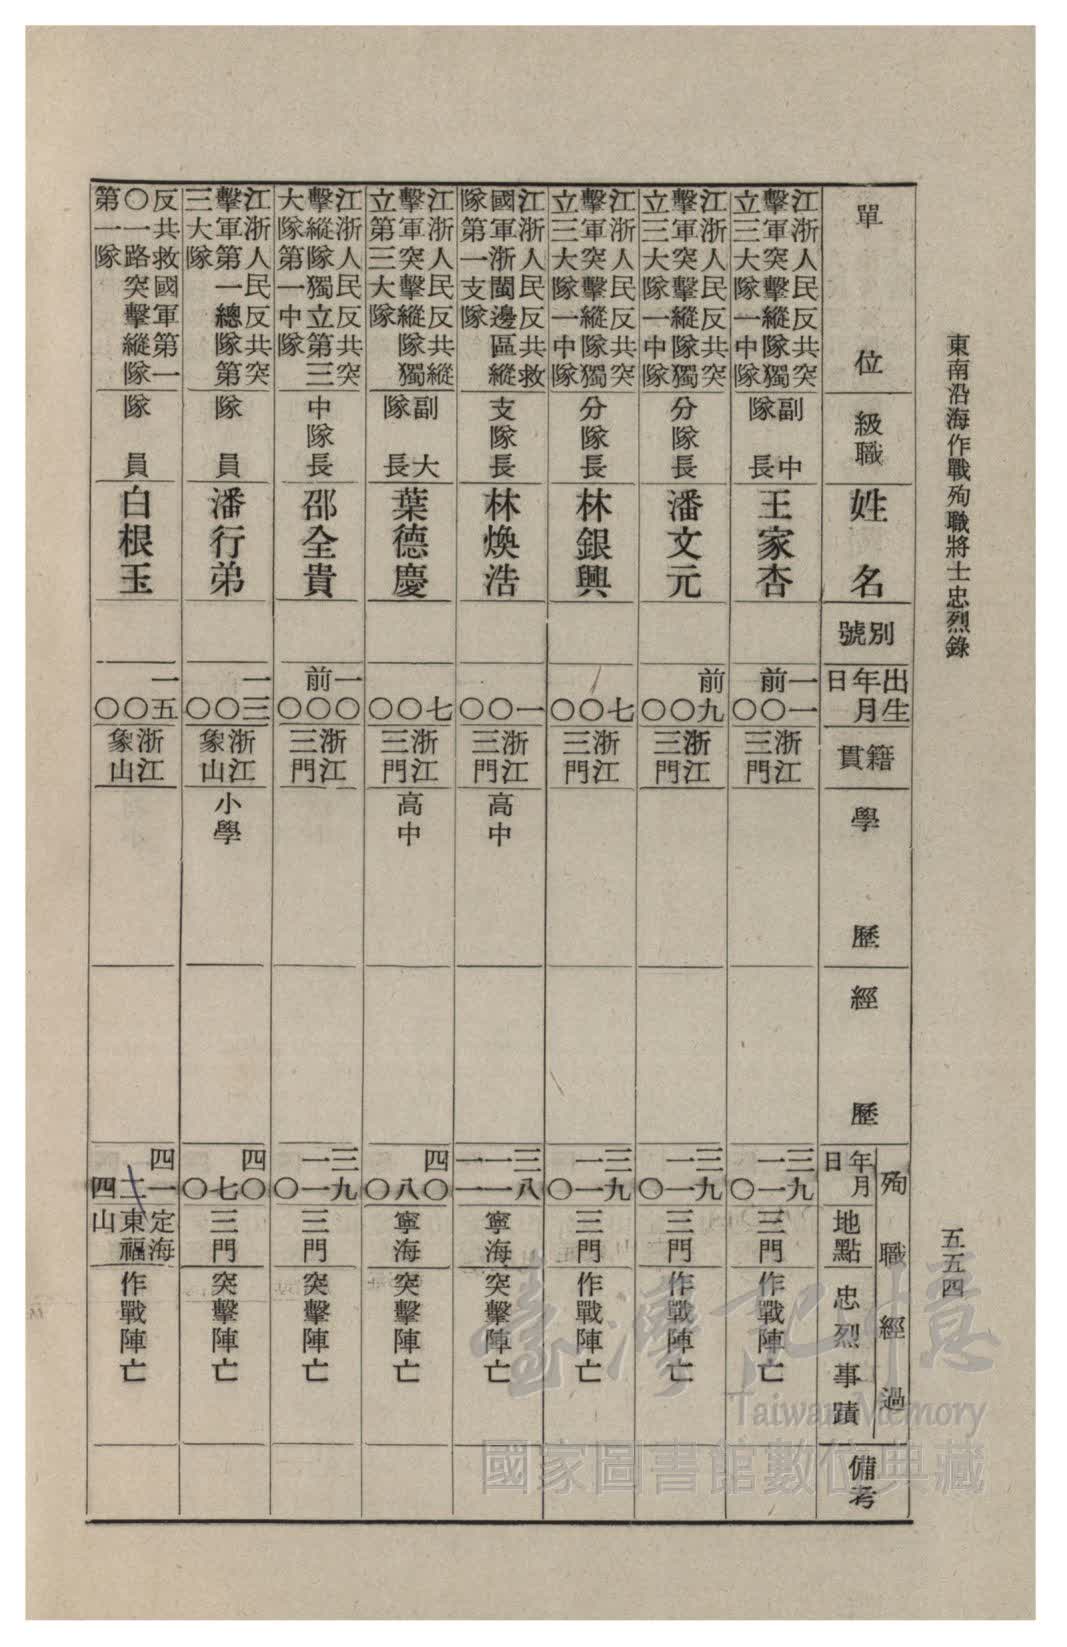 東南沿海作戰殉職將士忠烈錄
五五四
單位
級職
姓名
別號
出生
年月
日
籍貫
學歷
經歷
殉職經過
年月
日
地點
忠烈事蹟
備考
江浙人民反共突
擊軍突擊縱隊獨
立三大隊一中隊
副中
隊長
王家杏
一一
前〇
〇
浙江
三門
三九
一一
〇
三門
作戰陣亡
江浙人民反共突
擊軍突擊縱隊獨
立三大隊一中隊
分隊長
潘文元
前九
〇
〇
浙江
三門
三九
一一
〇
三門
作戰陣亡
江浙人民反共突
擊軍突擊縱隊獨
立三大隊一中隊
分隊長
林銀興
七
〇
〇
浙江
三門
三九
一一
〇
三門
作戰陣亡
江浙人民反共救
國軍浙閩邊區縱
隊第一支隊
支隊長
林煥浩
一
〇
〇
浙江
三門
高中
三八
一一
一一
寧海
突擊陣亡
江浙人民反共縱
擊軍突擊縱隊獨
立第三大隊
副大
隊長
葉德慶
七
〇
〇
浙江
三門
高中
四〇
八
〇
寧海
突擊陣亡
江浙人民反共突
擊縱隊獨立第三
大隊第一中隊
中隊長
邵全貴
一〇
前〇
〇
浙江
三門
三九
一一
〇
三門
突擊陣亡
江浙人民反共突
擊軍第一總隊第
三大隊
隊員
潘行弟
一三
〇
〇
浙江
象山
小學
四〇
七
〇
三門
突擊陣亡
反共救國軍第一
〇一路突擊縱隊
第一隊
隊員
白根玉
一五
〇
〇
浙江
象山
四一
二
四
定海
東福
山
作戰陣亡
臺灣記憶
Taiwan Memory
國家圖書館數位典藏